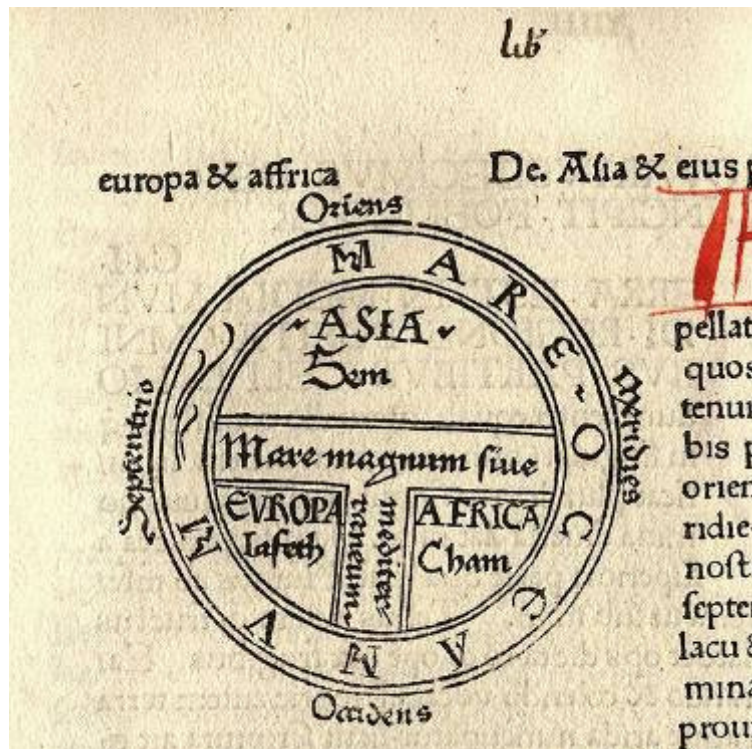 lib
europa & affrica
De. Asia & eius
Oriens
MARE OCEANVM
Septentrio
Meridies
ASIA
Sem
Mare magnum siue
mediterraneum
EVROPA
Iafeth
AFRICA
Cham
Occidens
pellat
quos
tenu
bis p
orien
ridie
nost
septe
lacu &
mina
prou